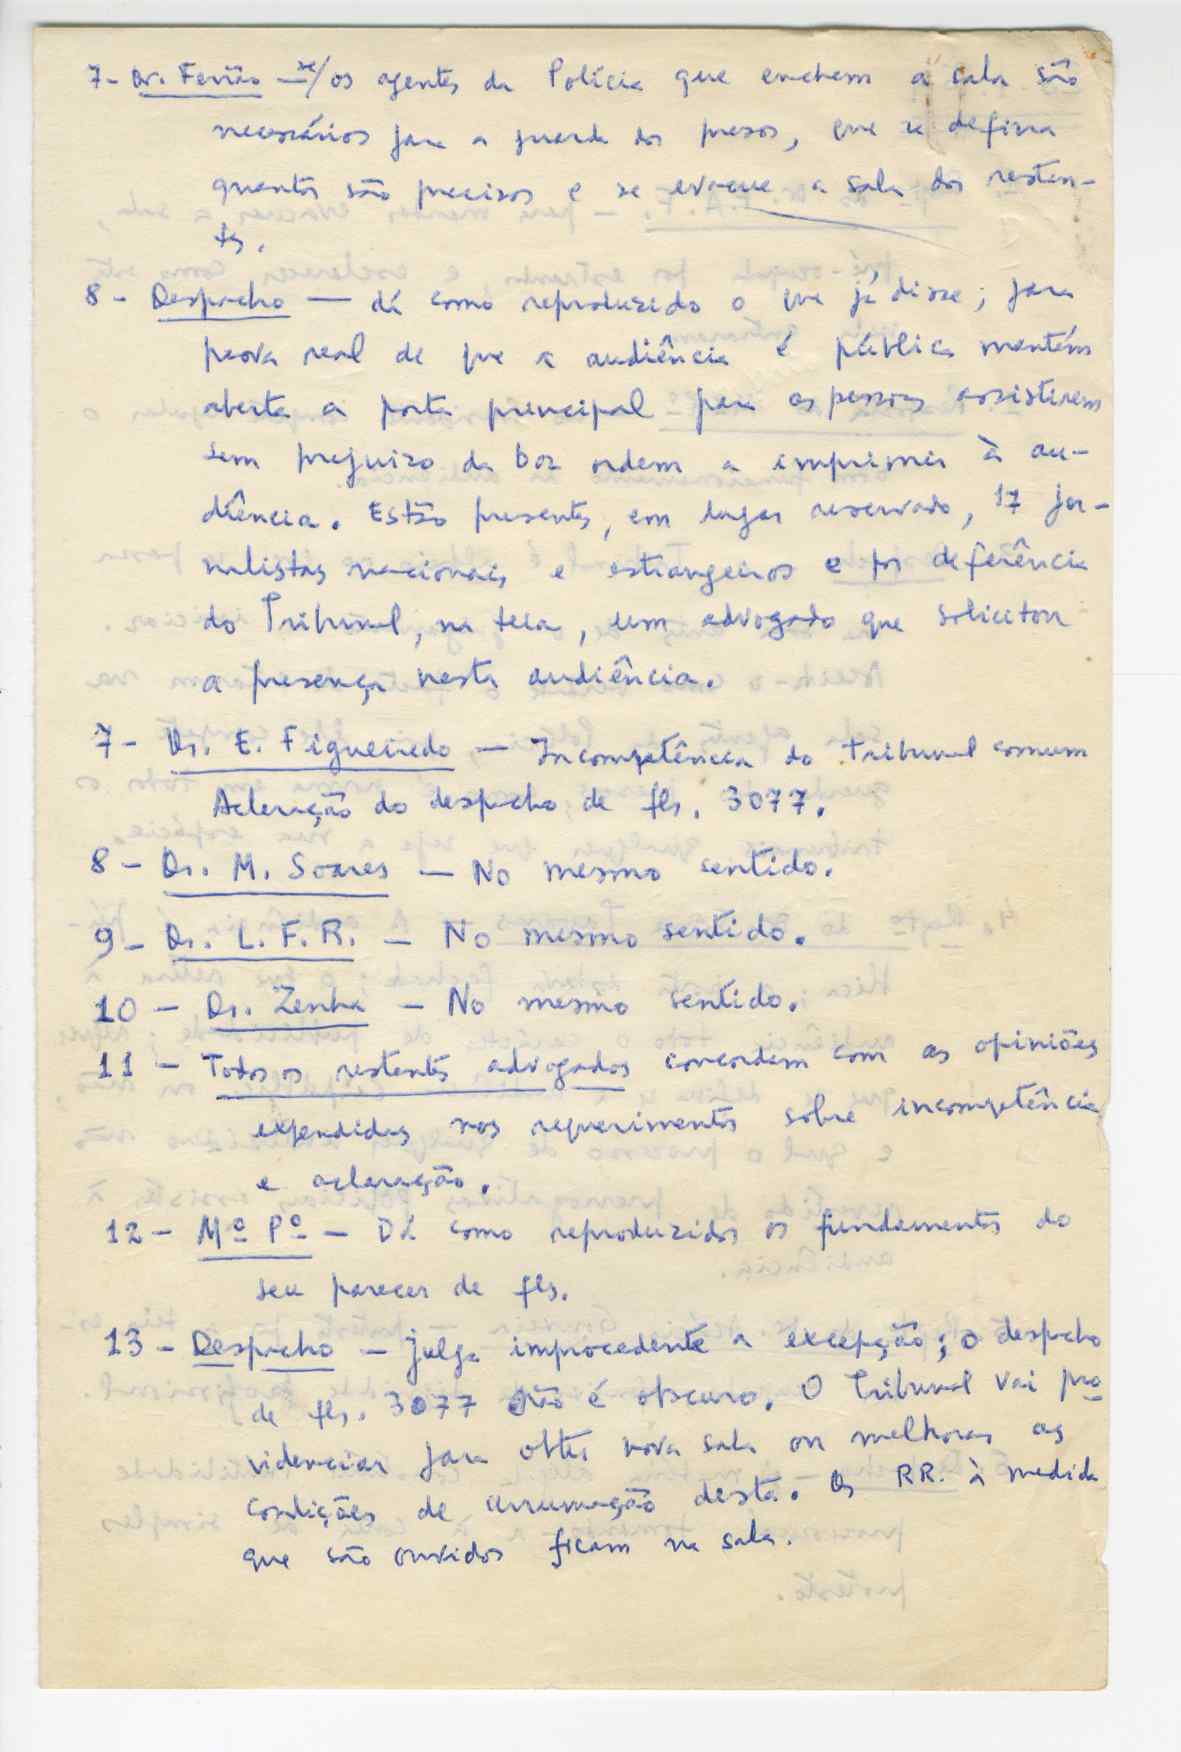 7 - Dr. Ferrão — se/os agentes da Polícia que enchem a sala são
necessários para a guarda dos presos, que se defina
quantos são precisos e se evacue a sala dos restan-
tes.
8 - Despacho — dá como reproduzido o que já disse; para
prova real de que a audiência é pública mantém
aberta a porta principal para as pessoas assistirem
sem prejuizo da boa ordem a imprimir à au-
diência. Estão presentes, em lugar reservado, 17 jor-
nalistas nacionais e estrangeiros e por deferência
do Tribunal, na teia, um advogado que solicitou
a presença nesta audiência.
7 - Dr. E. Figueiredo — Incompetência do tribunal comum
Aclaração do despacho de fls. 3077.
8 - Dr. M. Soares — No mesmo sentido.
9 - Dr. L. F. R. — No mesmo sentido.
10 - Dr. Zenha — No mesmo sentido.
11 - Todos os restantes advogados concordam com as opiniões
expendidas nos requerimentos sobre incompetência
e aclaração.
12 - Mº Pº — Dá como reproduzidos os fundamentos do
seu parecer de fls.
13 - Despacho — julga improcedente a excepção; o despacho
de fls. 3077 não é obscuro. O Tribunal vai pro
videnciar para obter nova sala ou melhorar as
condições de arrumação desta. Os RR. à medida
que são ouvidos ficam na sala.